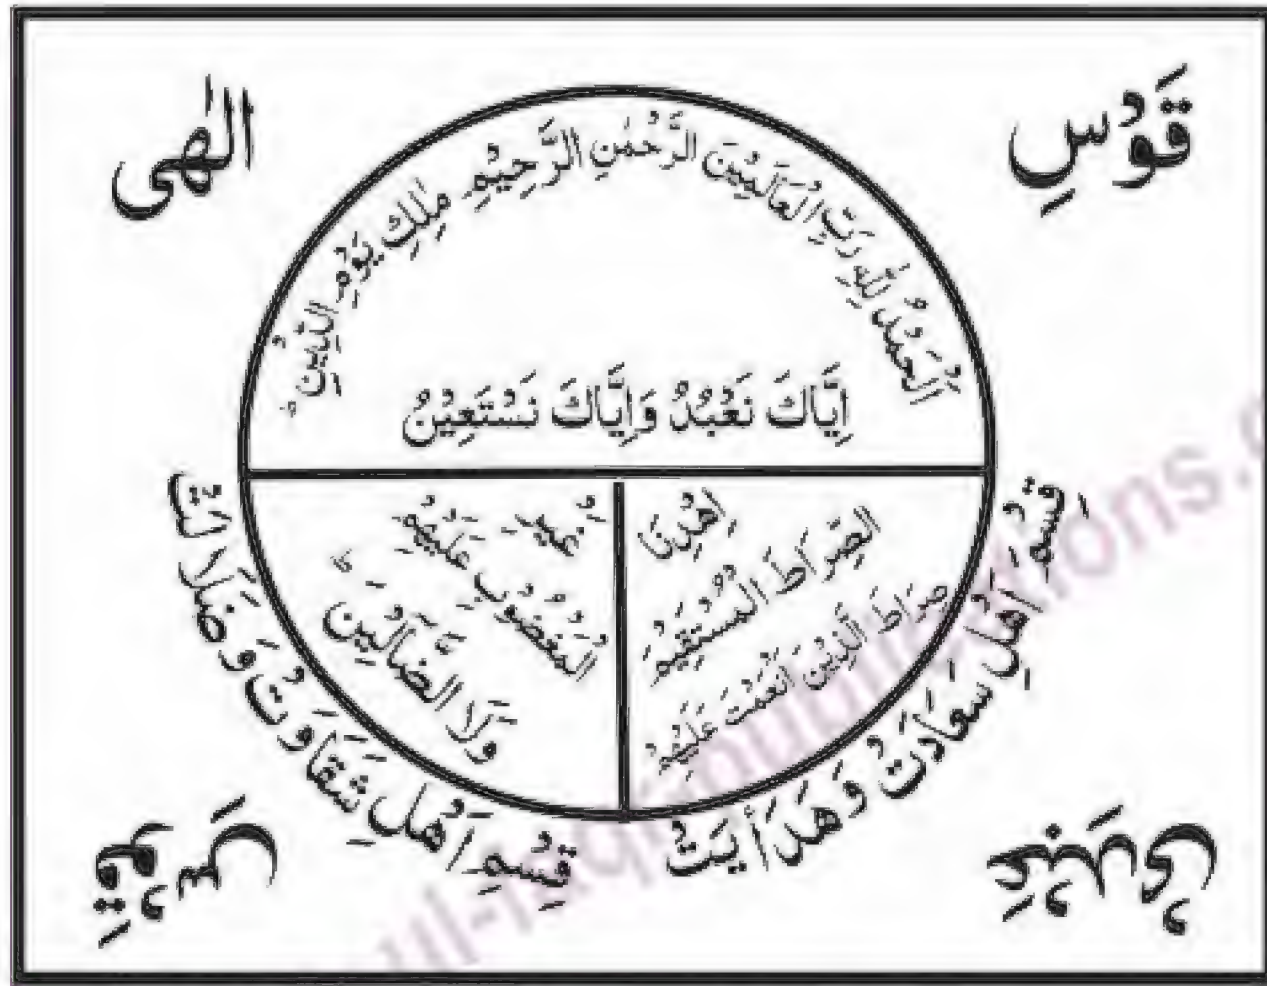 قَوْسِ
الٰهى
اَلْحَمْدُ لِلّٰهِ رَبِّ الْعَالَمِيْنَ الرَّحْمٰنِ الرَّحِيْمِ مٰلِكِ يَوْمِ الدِّيْنِ ؕ
اِيَّاكَ نَعْبُدُ وَاِيَّاكَ نَسْتَعِيْنُ
اِهْدِنَا
الصِّرَاطَ الْمُسْتَقِيْمَ
صِرَاطَ الَّذِيْنَ اَنْعَمْتَ عَلَيْهِمْ
غَيْرِ
الْمَغْضُوْبِ عَلَيْهِمْ
وَلَا الضَّآلِّيْنَ ؕ
قِسْمِ اَهْلِ سَعَادَتْ وَهَدَأيَتْ
قِسْمِ اَهْلِ شَقَاوَتْ وَضَلَالَتْ
قَوْسِ